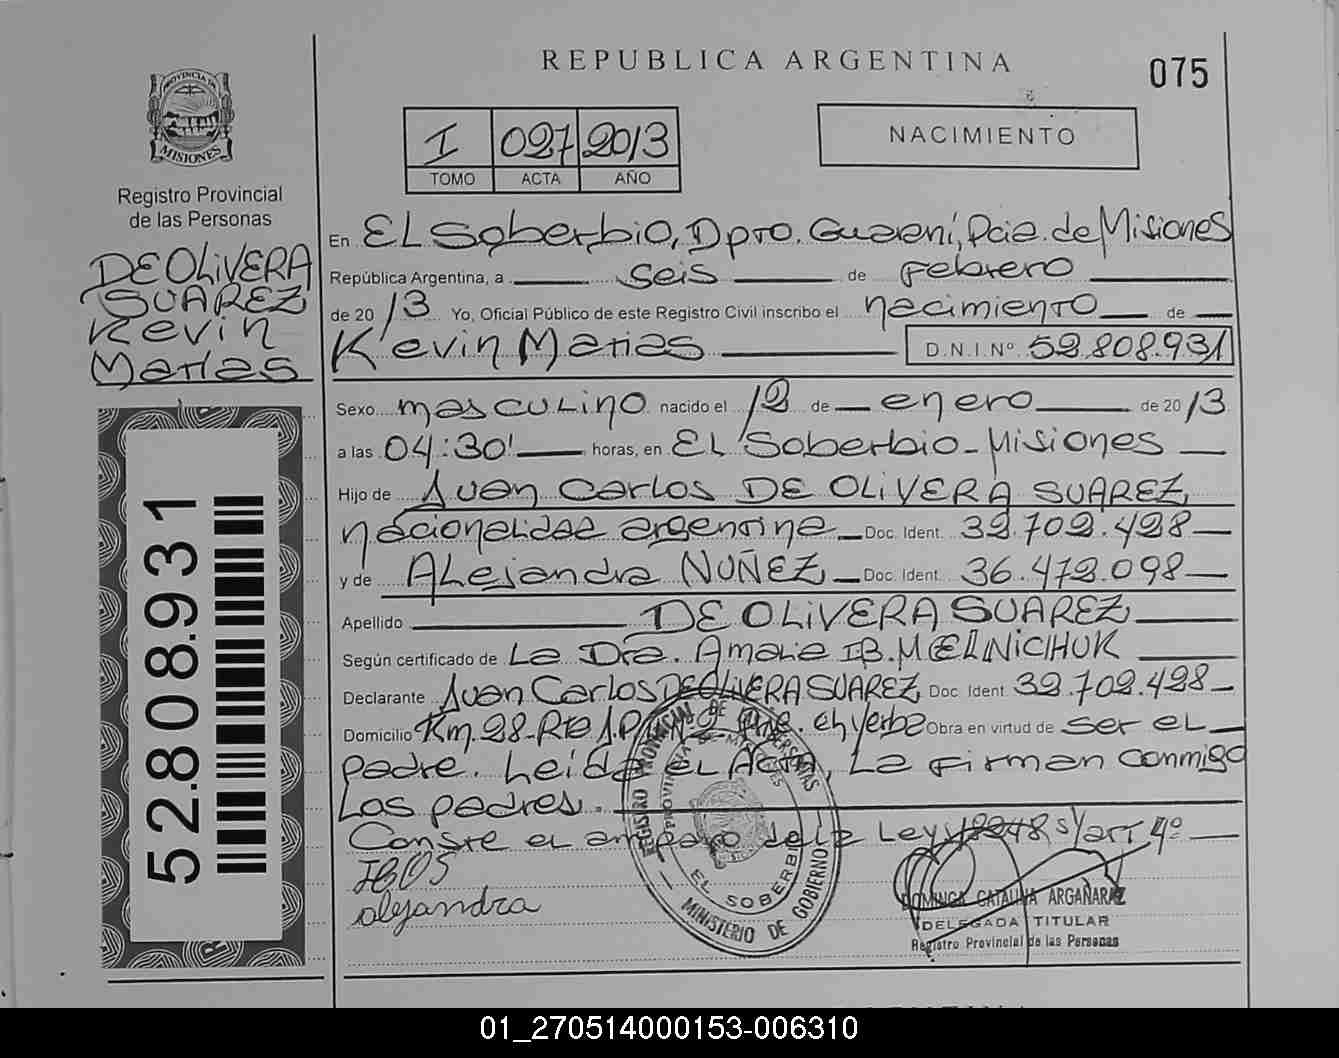 REPUBLICA ARGENTINA
075
PROVINCIA DE
MISIONES
Registro Provincial
de las Personas
DE OLIVERA
SUAREZ
Kevin
Matias
52.808.931
I 027 2013
TOMO ACTA AÑO
NACIMIENTO
En El Soberbio, Dpto. Guaraní, Pcia. de Misiones
República Argentina, a seis de Febrero
de 2013 Yo, Oficial Público de este Registro Civil inscribo el nacimiento de
Kevin Matias D.N.I.Nº 52.808.931
Sexo masculino nacido el 12 de enero de 2013
a las 04:30' horas, en El Soberbio - Misiones
Hijo de Juan Carlos DE OLIVERA SUAREZ
nacionalidad argentina Doc. Ident. 32.702.428
y de Alejandra NUÑEZ Doc. Ident. 36.472.098
Apellido DE OLIVERA SUAREZ
Según certificado de La Dra. Amalia B. MELNICHUK
Declarante Juan Carlos DE OLIVERA SUAREZ Doc Ident 32.702.428
Domicilio Km. 28 - Obra en virtud de ser el
padre. Leída el Acta, La Firman conmigo
Los padres.
Conste el amparo de la Ley 18248 s/art 4º
alejandra
REGISTRO PROVINCIAL DE LAS PERSONAS
PROVINCIA DE MISIONES
EL SOBERBIO
MINISTERIO DE GOBIERNO
DOMINGA CATALINA ARGAÑARAZ
DELEGADA TITULAR
Registro Provincial de las Personas
01_270514000153-006310